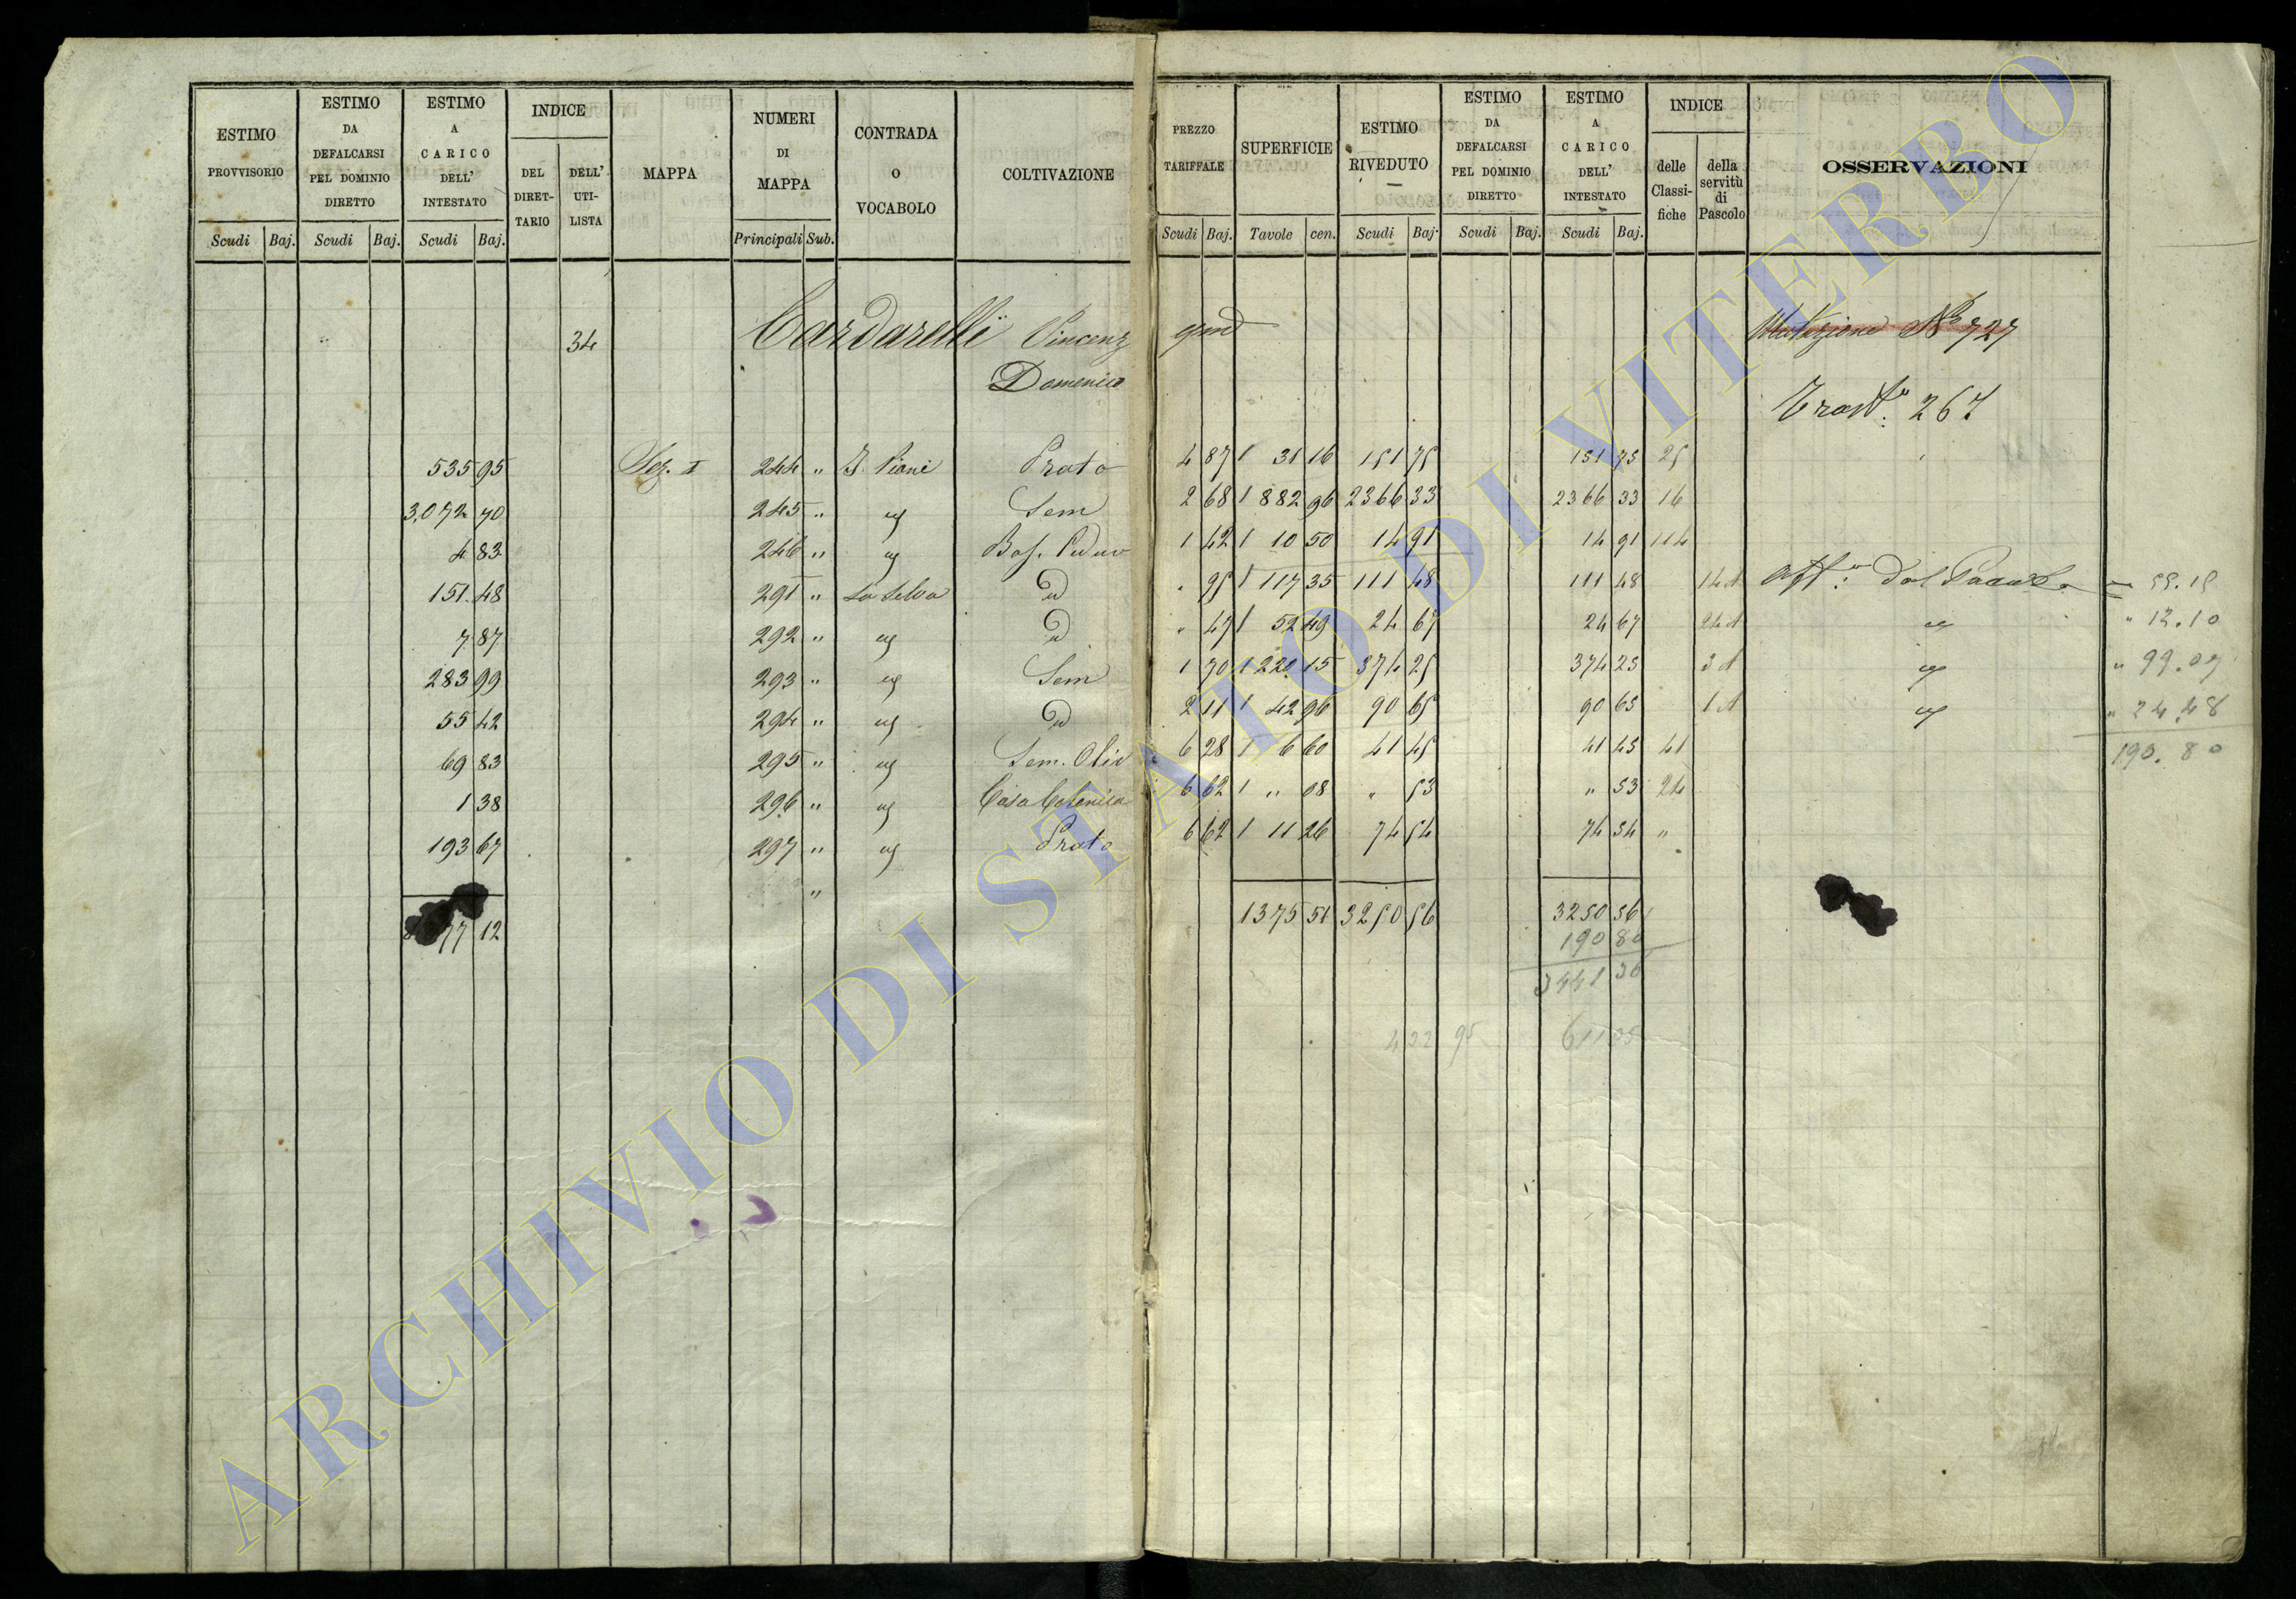 ESTIMO PROVVISORIO Scudi Baj.
ESTIMO DA DEFALCARSI PEL DOMINIO DIRETTO Scudi Baj.
ESTIMO A CARICO DELL' INTESTATO Scudi Baj.
INDICE DEL DIRETTARIO DELL' UTILISTA
MAPPA
NUMERI DI MAPPA Principali Sub.
CONTRADA O VOCABOLO
COLTIVAZIONE
PREZZO TARIFFALE Scudi Baj.
SUPERFICIE Tavole cen.
ESTIMO RIVEDUTO Scudi Baj.
ESTIMO DA DEFALCARSI PEL DOMINIO DIRETTO Scudi Baj.
ESTIMO A CARICO DELL' INTESTATO Scudi Baj.
INDICE delle Classifiche della servitù di Pascolo
OSSERVAZIONI
34 Cardarelli Vincenz qm Mutazione N° 727
Domenico
Trast. 267
535 95 Sez. I 244 " I Piani Prato 4 87 1 31 16 151 75 151 75 25
3,072 70 245 " ud Sem 2 68 1 882 96 2366 33 2366 33 16
4 83 246 " ud Bos. Ceduo 1 42 1 10 50 14 91 14 91 114
151 48 291 " La Selva ud " 95 1 117 35 111 48 111 48 14 A Aff. dal Pascolo = 55.15
7 87 292 " ud ud " 47 1 52 49 24 67 24 67 24 A ud " 12.10
283 99 293 " ud Sem 1 70 1 220 15 374 25 374 25 3 A ud " 99.07
55 42 294 " ud ud 2 11 1 42 96 90 65 90 65 1 A ud " 24.48
69 83 295 " ud Sem. Oliv 6 28 1 6 60 41 45 41 45 41 190.80
1 38 296 " ud Casa Colonica 6 62 1 " 08 " 53 " 53 24
193 67 297 " ud Prato 6 62 1 11 26 74 54 74 54 "
"
77 12 1375 51 3250 56 3250 56
190 80
3441 36
422 95 611 35
ARCHIVIO DI STATO DI VITERBO